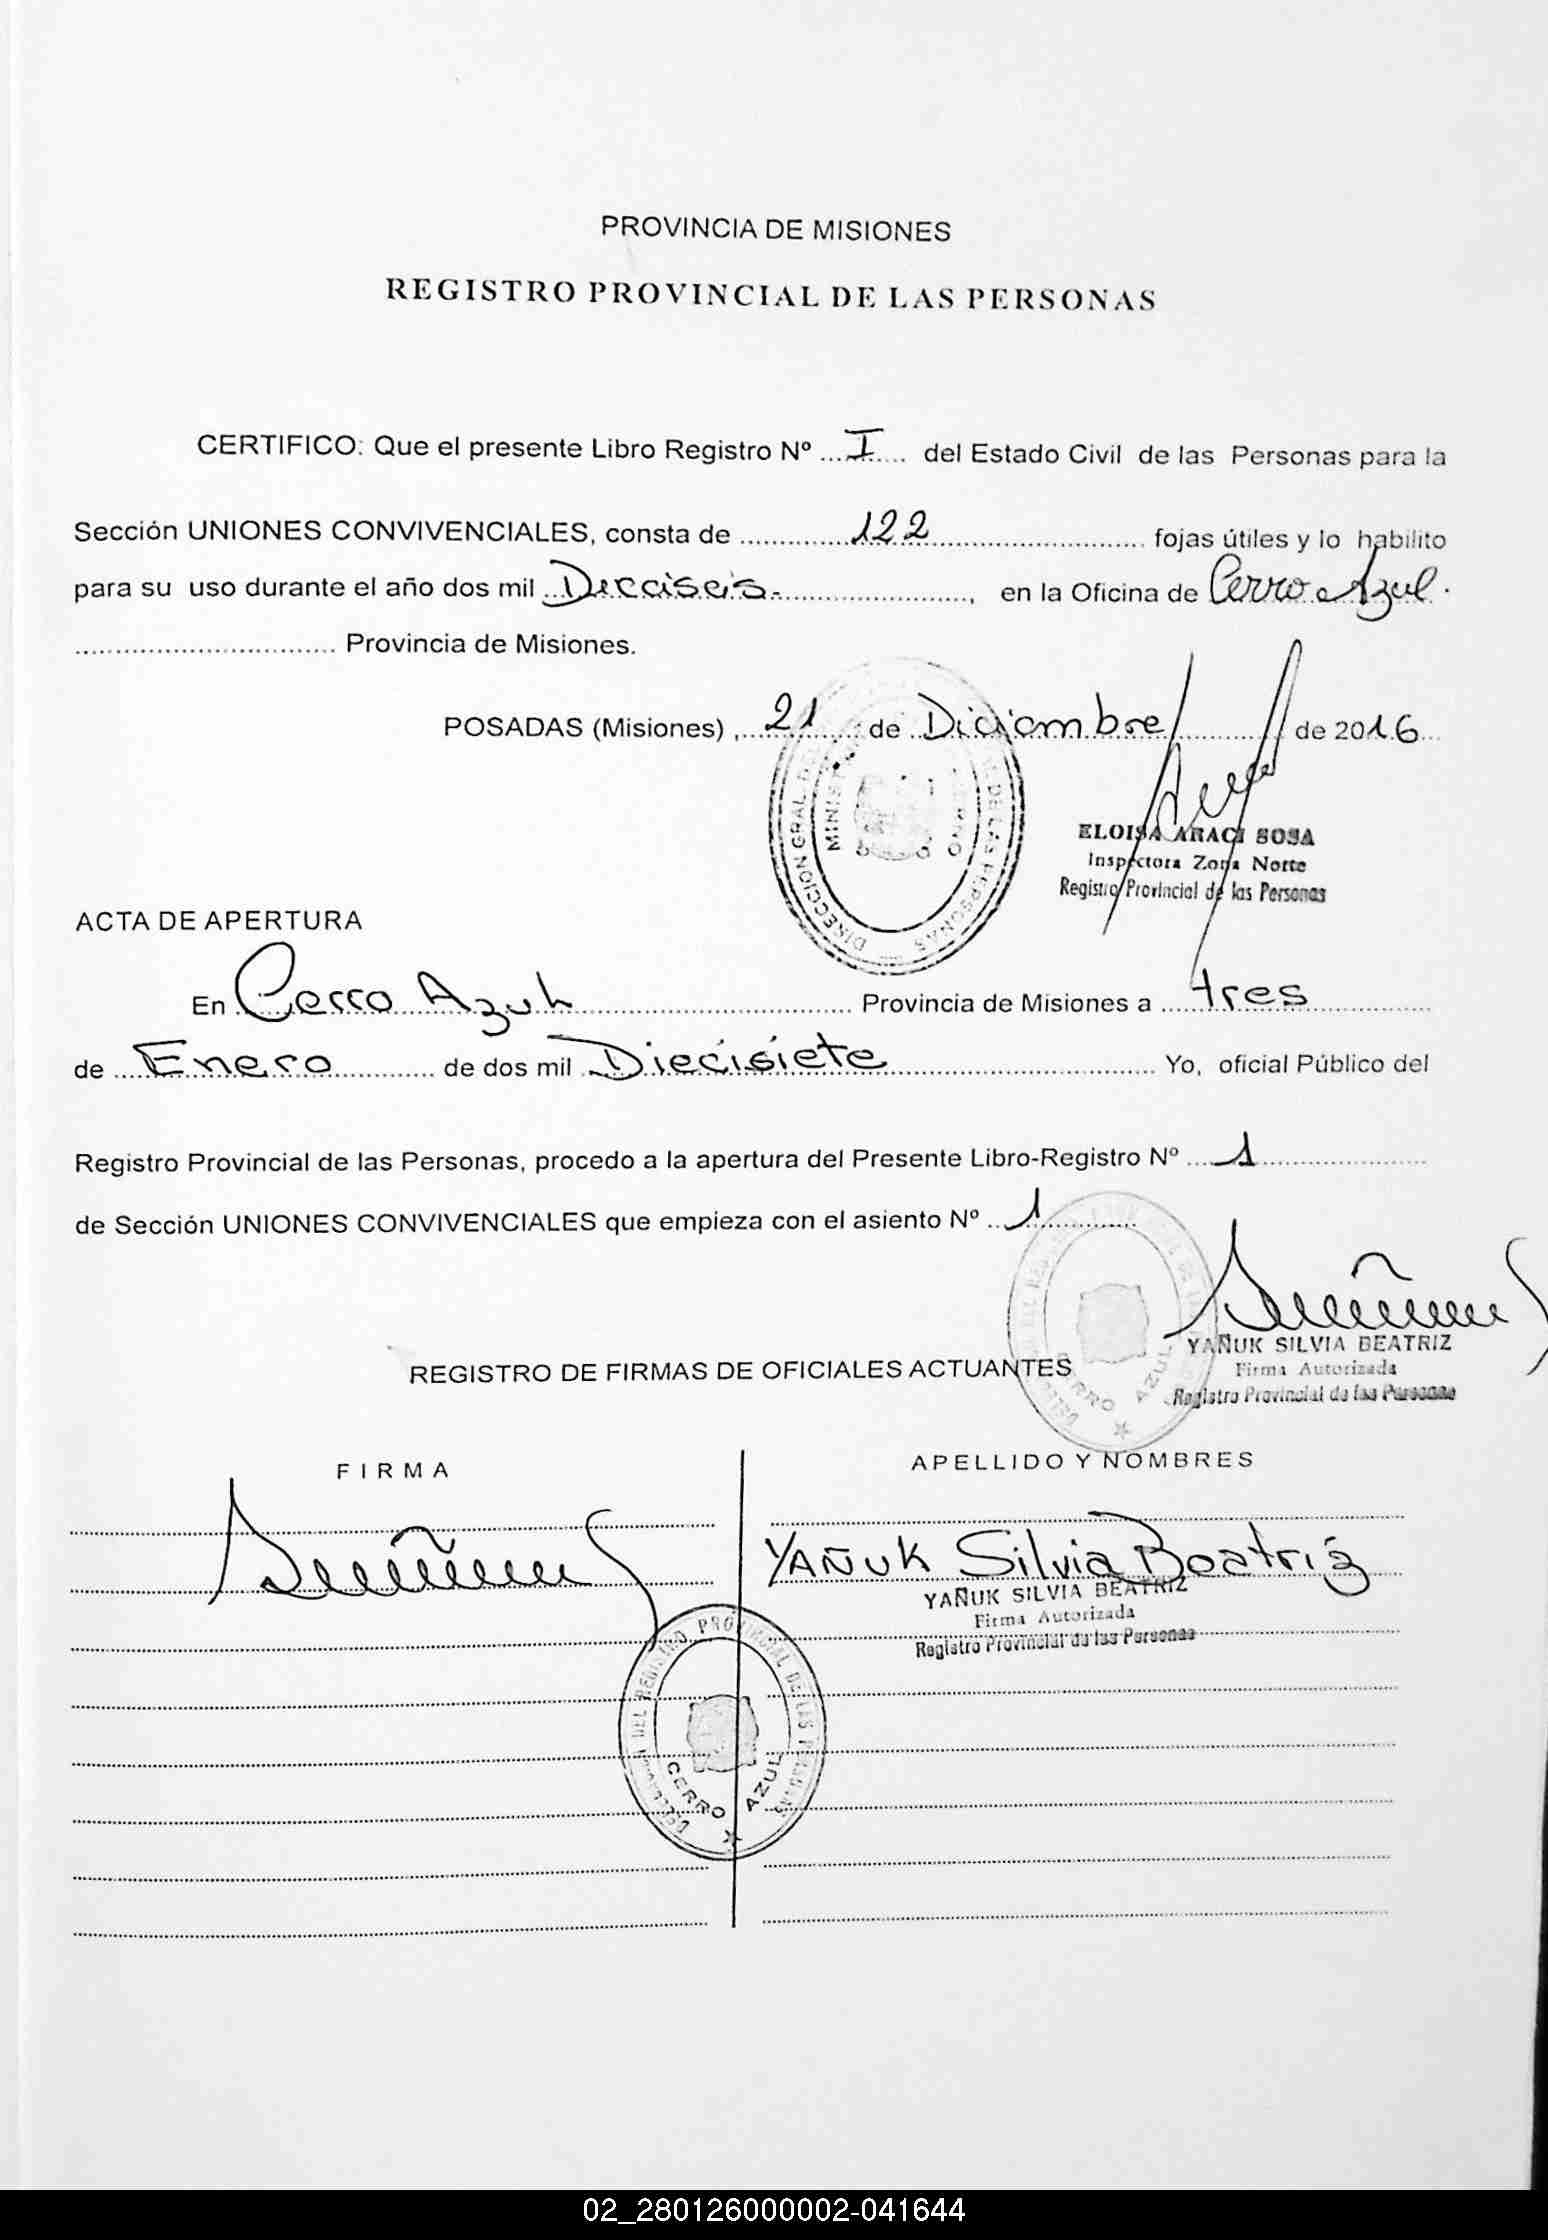 PROVINCIA DE MISIONES
REGISTRO PROVINCIAL DE LAS PERSONAS
CERTIFICO: Que el presente Libro Registro Nº ...I.... del Estado Civil de las Personas para la
Sección UNIONES CONVIVENCIALES, consta de ..........122.......... fojas útiles y lo habilito
para su uso durante el año dos mil ..Dieciseis.-...................., en la Oficina de Cerro Azul.
................................ Provincia de Misiones.
POSADAS (Misiones) ,...21..... de ..Diciembre.......... de 2016...
ELOISA ARACI SOSA
Inspectora Zona Norte
Registro Provincial de las Personas
DIRECCION GRAL DEL DE LAS PERSONAS
ACTA DE APERTURA
En Cerro Azul.............................. Provincia de Misiones a ....tres..............
de ....Enero............ de dos mil ..Diecisiete.............................. Yo, oficial Público del
Registro Provincial de las Personas, procedo a la apertura del Presente Libro-Registro Nº ....1....................
de Sección UNIONES CONVIVENCIALES que empieza con el asiento Nº ...1..............
YAÑUK SILVIA BEATRIZ
Firma Autorizada
Registro Provincial de las Personas
CERRO AZUL
REGISTRO DE FIRMAS DE OFICIALES ACTUANTES
FIRMA APELLIDO Y NOMBRES
YAÑUK Silvia Beatriz
YAÑUK SILVIA BEATRIZ
Firma Autorizada
Registro Provincial de las Personas
DEL REGISTRO PROVINCIAL DE LAS PERSONAS
CERRO AZUL
02_280126000002-041644